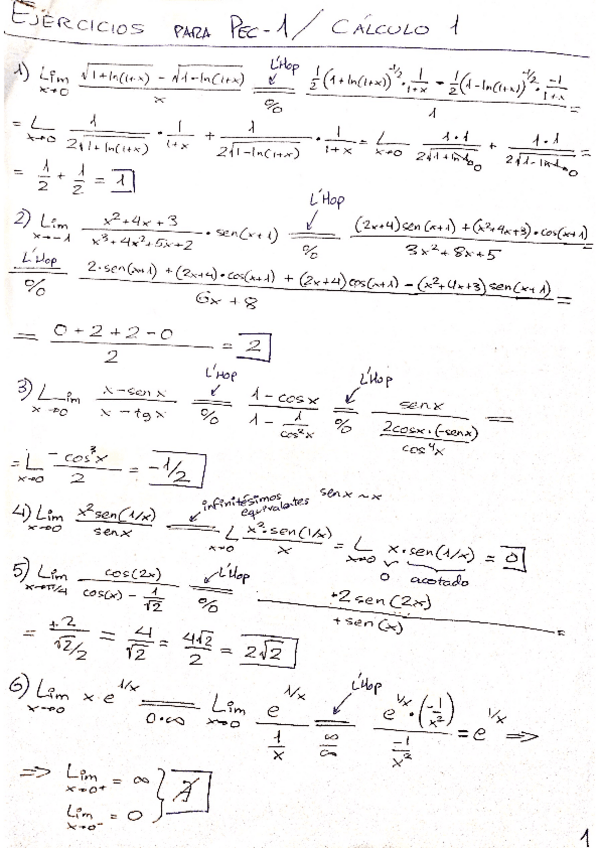 EJERCICIOS PARA PEC-1 / CÁLCULO 1
1) Lim x→0 (√(1+ln(1+x)) - √(1-ln(1+x))) / x = L'Hop 0/0 = (1/2 (1+ln(1+x))^(-1/2) · 1/(1+x) - 1/2 (1-ln(1+x))^(-1/2) · -1/(1+x)) / 1 =
= L x→0 1/(2√(1+ln(1+x))) · 1/(1+x) + 1/(2√(1-ln(1+x))) · 1/(1+x) = L x→0 1·1/(2√(1+ln 1→0)) + 1·1/(2√(1-ln 1→0)) =
= 1/2 + 1/2 = 1
2) Lim x→-1 (x²+4x+3)/(x³+4x²+5x+2) · sen(x+1) = L'Hop 0/0 = ((2x+4)sen(x+1) + (x²+4x+3)·cos(x+1)) / (3x²+8x+5)
L'Hop 0/0 = (2·sen(x+1) + (2x+4)·cos(x+1) + (2x+4)cos(x+1) - (x²+4x+3)sen(x+1)) / (6x+8) =
= (0+2+2-0)/2 = 2
3) Lim x→0 (x-senx)/(x-tgx) = L'Hop 0/0 = (1-cosx)/(1 - 1/cos²x) = L'Hop 0/0 = senx / (2cosx·(-senx)/cos⁴x) =
= L x→0 -cos³x/2 = -1/2
4) Lim x→0 x²sen(1/x)/senx = infinitésimos equivalentes senx ~ x L x→0 x²·sen(1/x)/x = L x→0 x·sen(1/x) = 0
0 acotado
5) Lim x→π/4 cos(2x)/(cos(x) - 1/√2) = L'Hop 0/0 = +2sen(2x)/+sen(x) =
= +2/(√2/2) = 4/√2 = 4√2/2 = 2√2
6) Lim x→0 x e^(1/x) = 0·∞ = Lim x→0 e^(1/x)/(1/x) = L'Hop ∞/∞ = e^(1/x)·(-1/x²)/(-1/x²) = e^(1/x) ⇒
⇒ Lim x→0⁺ = ∞
Lim x→0⁻ = 0 } ∄
1